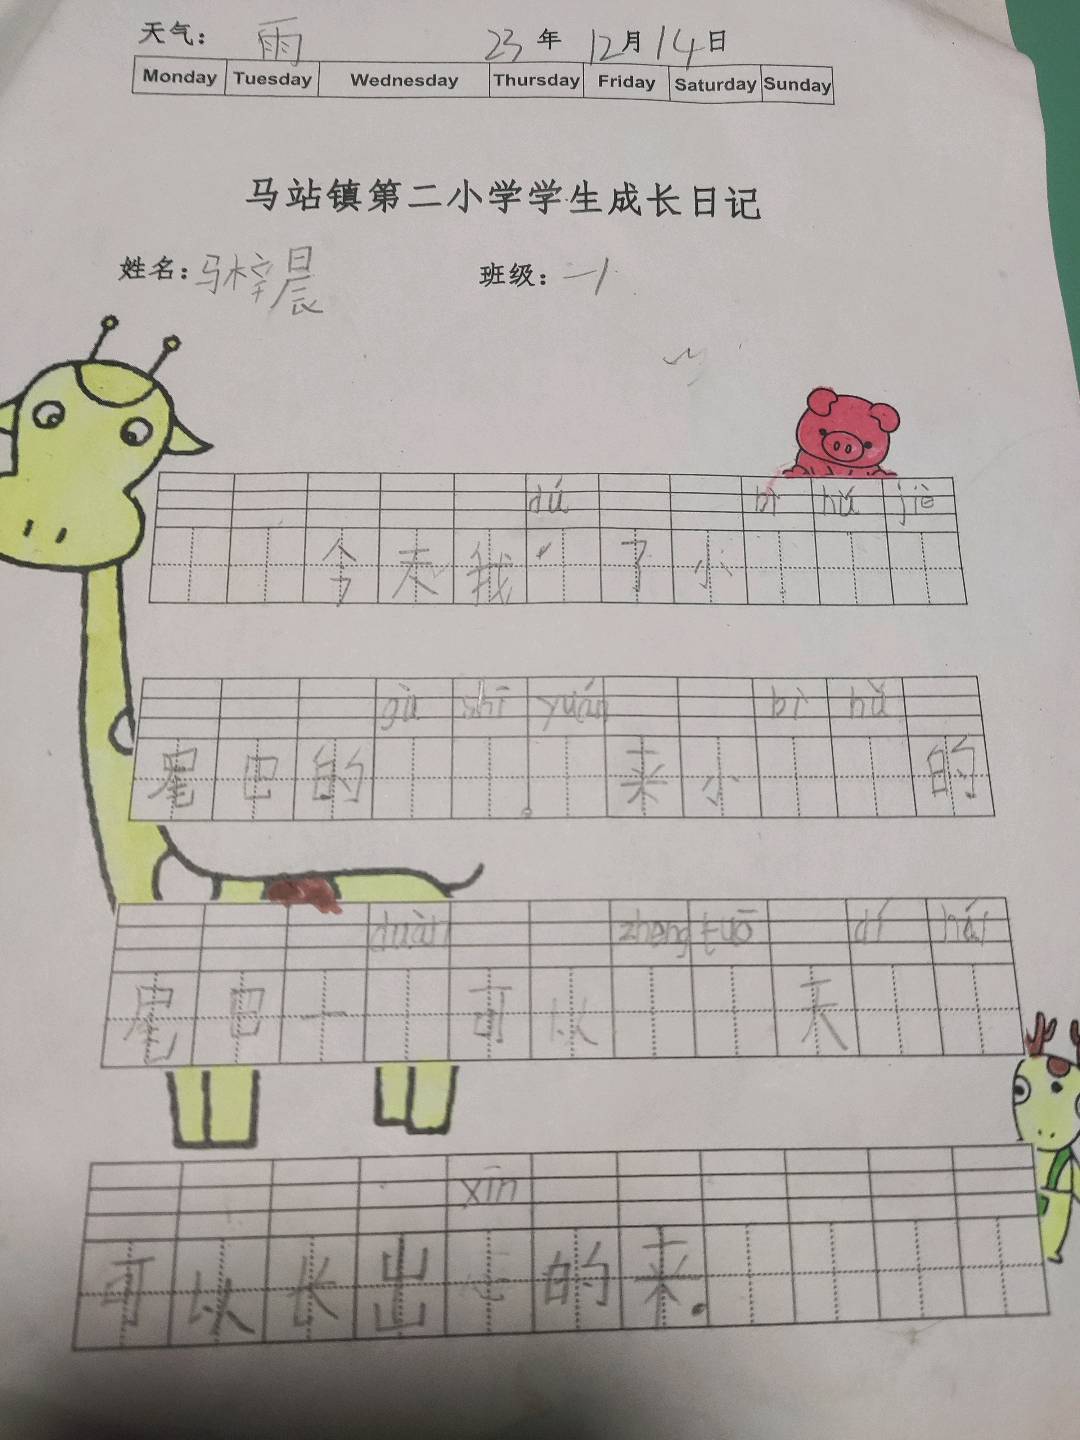 天气： 雨 23 年 12 月 14 日
Monday Tuesday Wednesday Thursday Friday Saturday Sunday
马站镇第二小学学生成长日记
姓名：马梓晨 班级：一1
dú bì hǔ jiè
今天我 了小
gù shì yuán bì hǔ
尾巴的 。 来小 的
duàn zhèng tuō dí hái
尾巴一 可以 天
xīn
可以长出 的来.